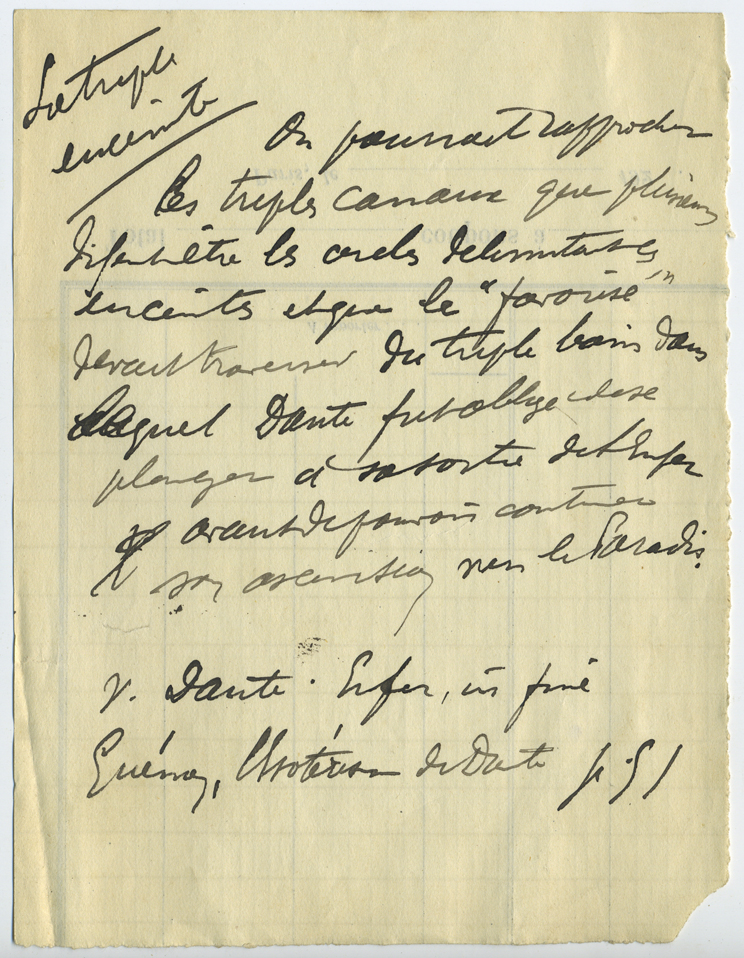 La triple
enceinte
On pourrait rapprocher
les triples canaux que plusieurs
disent être les cercles délimitant les
enceintes et que le "favorisé"
devait traverser du triple bain dans
lequel Dante fut obligé de se
plonger à sa sortie de l'Enfer
avant de pouvoir continuer
son ascension vers le Paradis.
V. Dante. Enfer, in fine
Guénon, l'Esotérisme de Dante p. 51